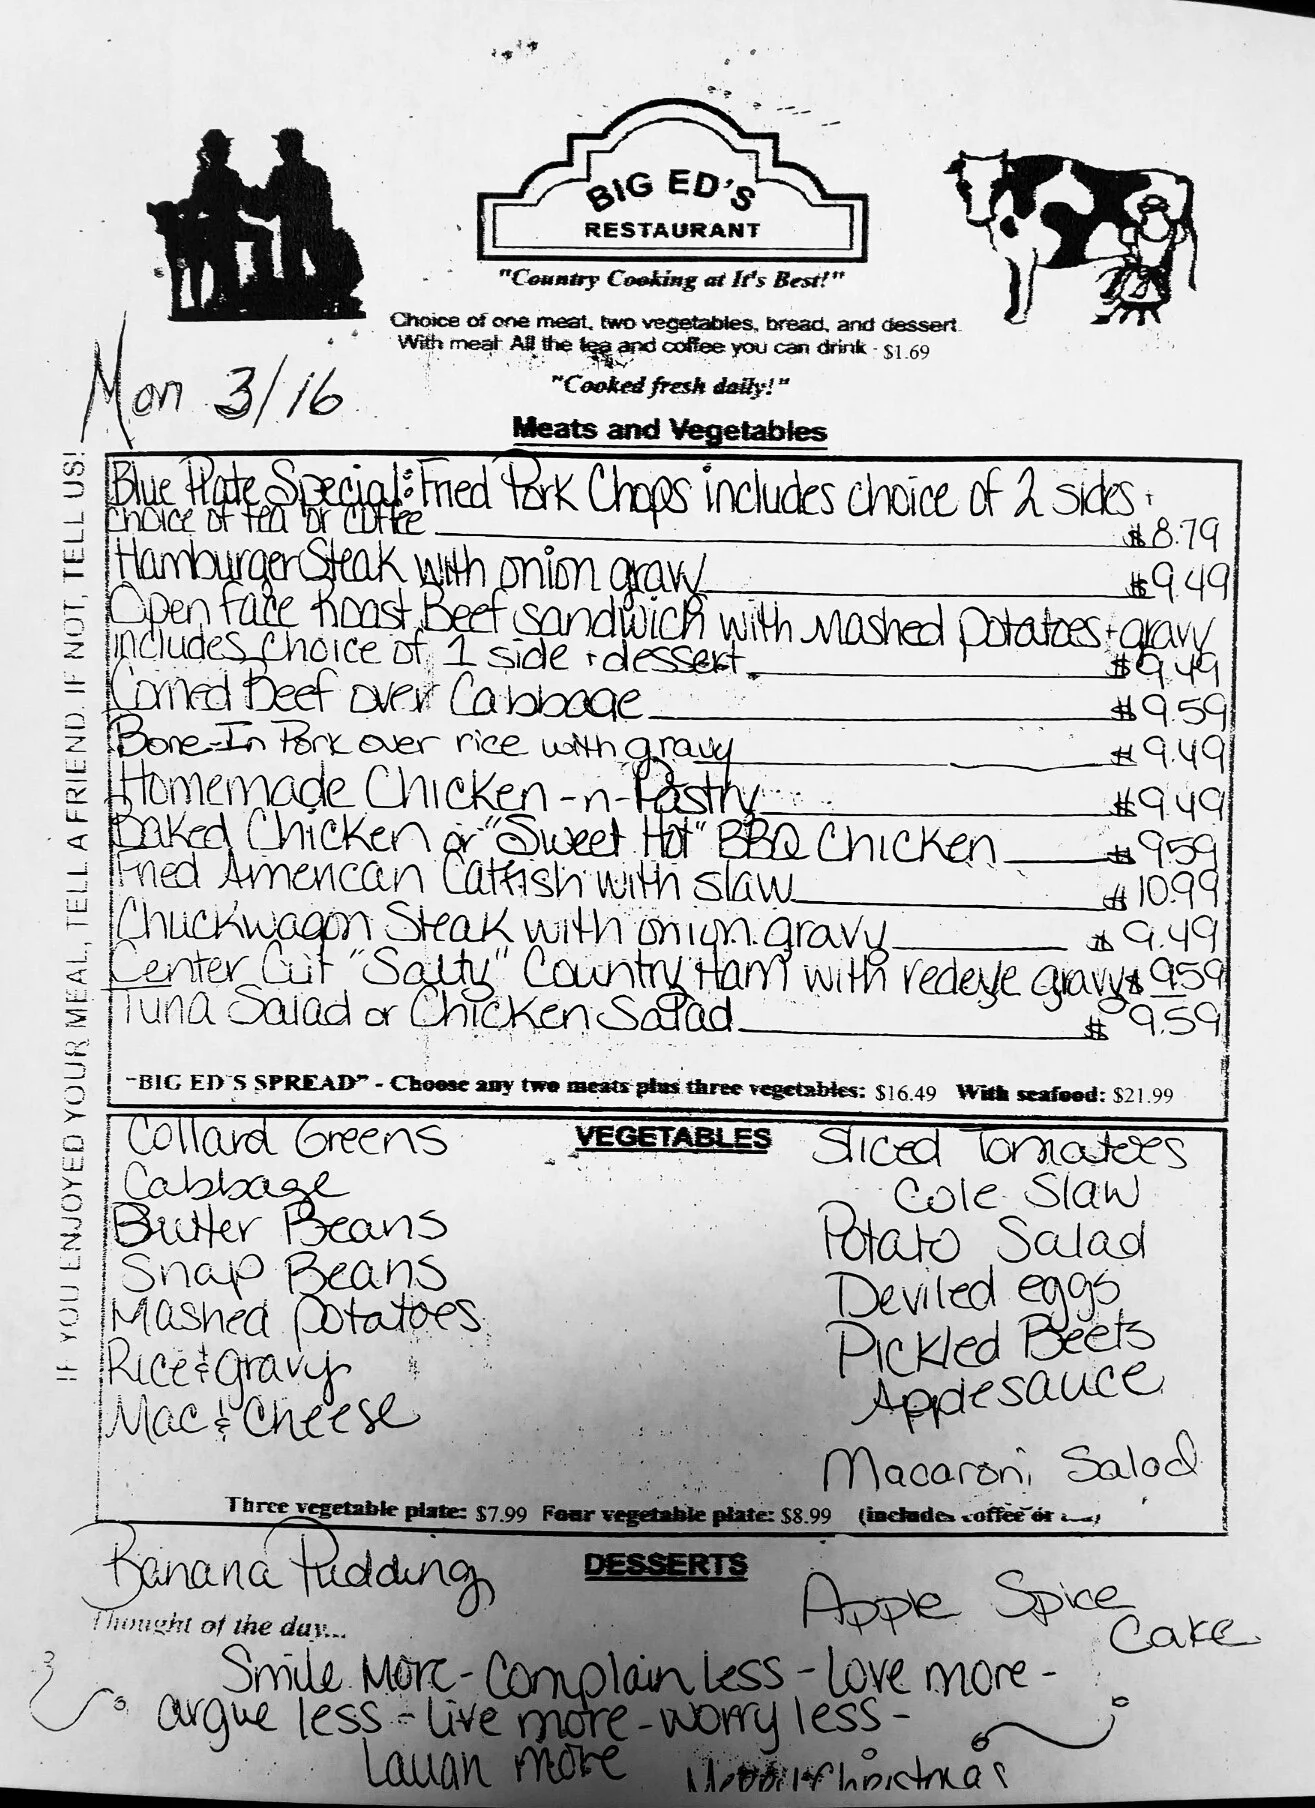 BIG ED'S
RESTAURANT
"Country Cooking at It's Best!"
Choice of one meat, two vegetables, bread, and dessert.
With meal: All the tea and coffee you can drink - $1.69
"Cooked fresh daily!"
Mon 3/16
Meats and Vegetables
Blue Plate Special: Fried Pork Chops includes choice of 2 sides +
choice of tea or coffee $8.79
Hamburger Steak with onion gravy $9.49
Open Face Roast Beef sandwich with Mashed Potatoes + gravy
includes choice of 1 side + dessert $9.49
Corned Beef over Cabbage $9.59
Bone-In Pork over rice with gravy $9.49
Homemade Chicken-n-Pastry $9.49
Baked Chicken or "Sweet Hot" BBQ Chicken $9.59
Fried American Catfish with slaw $10.99
Chuckwagon Steak with onion gravy $9.49
Center Cut "Salty" Country Ham with redeye gravy $9.59
Tuna Salad or Chicken Salad $9.59
"BIG ED'S SPREAD" - Choose any two meats plus three vegetables: $16.49 With seafood: $21.99
IF YOU ENJOYED YOUR MEAL, TELL A FRIEND. IF NOT, TELL US!
VEGETABLES
Collard Greens
Cabbage
Butter Beans
Snap Beans
Mashed Potatoes
Rice & gravy
Mac & Cheese
Sliced Tomatoes
Cole Slaw
Potato Salad
Deviled eggs
Pickled Beets
Applesauce
Macaroni Salad
Three vegetable plate: $7.99 Four vegetable plate: $8.99 (includes coffee or
DESSERTS
Banana Pudding
Apple Spice
Cake
Thought of the day...
Smile More - Complain less - Love more -
argue less - Live more - worry less -
Laugh more